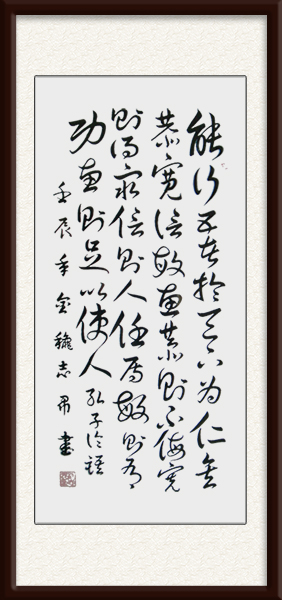 能行五者於天下为仁矣
恭寬信敏惠恭則不侮寬
則得眾信則人任焉敏則有
功惠則足以使人孔子論語
壬辰年志書